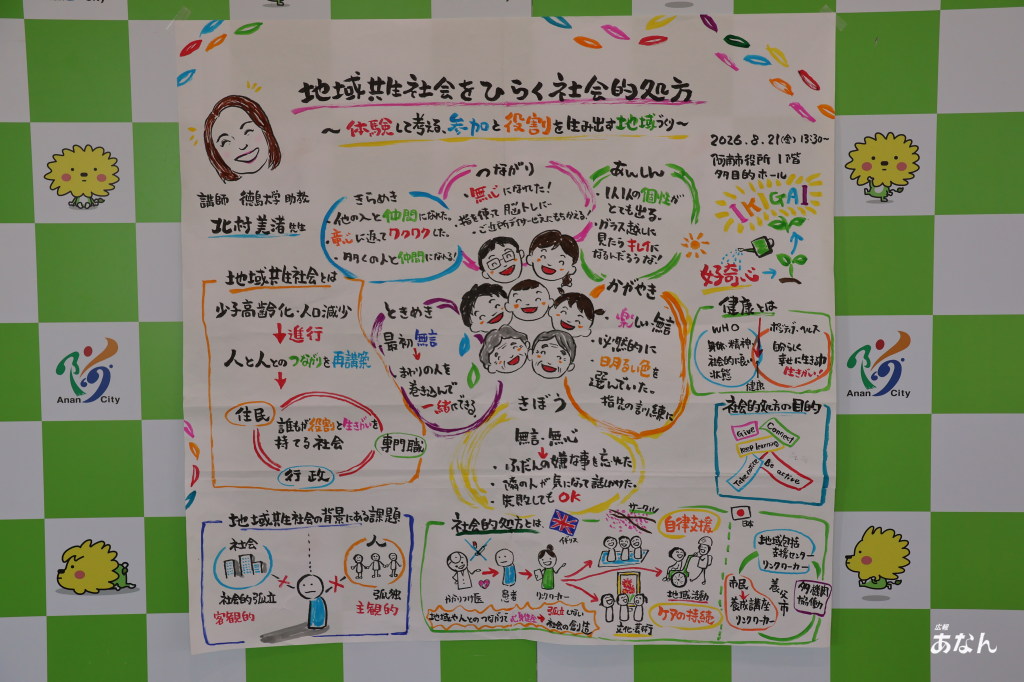 地域共生社会をひらく社会的処方
～体験して考える、参加と役割を生み出す地域づくり～
2026.8.21(金)13:30～
阿南市役所 1階
多目的ホール
講師 徳島大学 助教
北村美渚 先生
きらめき
・他の人と仲間になれた。
・童心に返ってワクワクした。
・多くの人と仲間になれる！
つながり
・無心になれた！
・指を使って脳トレに
あんしん
・1人1人の個性が
とても出る。
・ガラス越しに
見たらキレイに
なるんだろうな！
IKIGAI
好奇心
地域共生社会とは
少子高齢化・人口減少
進行
人と人とのつながりを再構築
住民
誰もが役割と生きがいを
持てる社会
専門職
行政
ときめき
最初 無言
しまわりの人を
巻き込んで
一緒にできる！
かがやき
・楽しい無言
・必然的に
明るい色を
選んでいた。
・指先の訓練に
きぼう
無言・無心
・ふだんの嫌な事を忘れた
・隣の人が気になって話しかけた。
・失敗してもOK
健康とは
WHO
身体・精神
社会的に良い
状態
ポジティブヘルス
自分らしく
幸せに生きる
生きがい！
健康
社会的処方の目的
Give
Connect
Keep learning
Take notice
Be active
地域共生社会の背景にある課題
社会
人
社会的孤立
客観的
孤独
主観的
社会的処方とは、
イギリス
サークル
自律支援
かかりつけ医
患者
リンクワーカー
地域活動
文化・芸術
ケアの持続
地域や人とのつながりで
孤立しない
社会の創造
日本
地域包括
支援センター
リンクワーカー
市民
養成講座
リンクワーカー
養父市
多機関
協働
Anan City
Anan City
広報
あなん